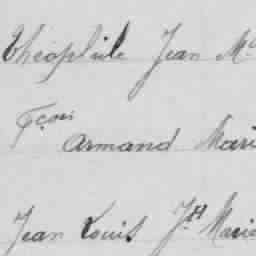 Théophile Jean M
Fçois Armand Mari
Jean Louis Jh Marie